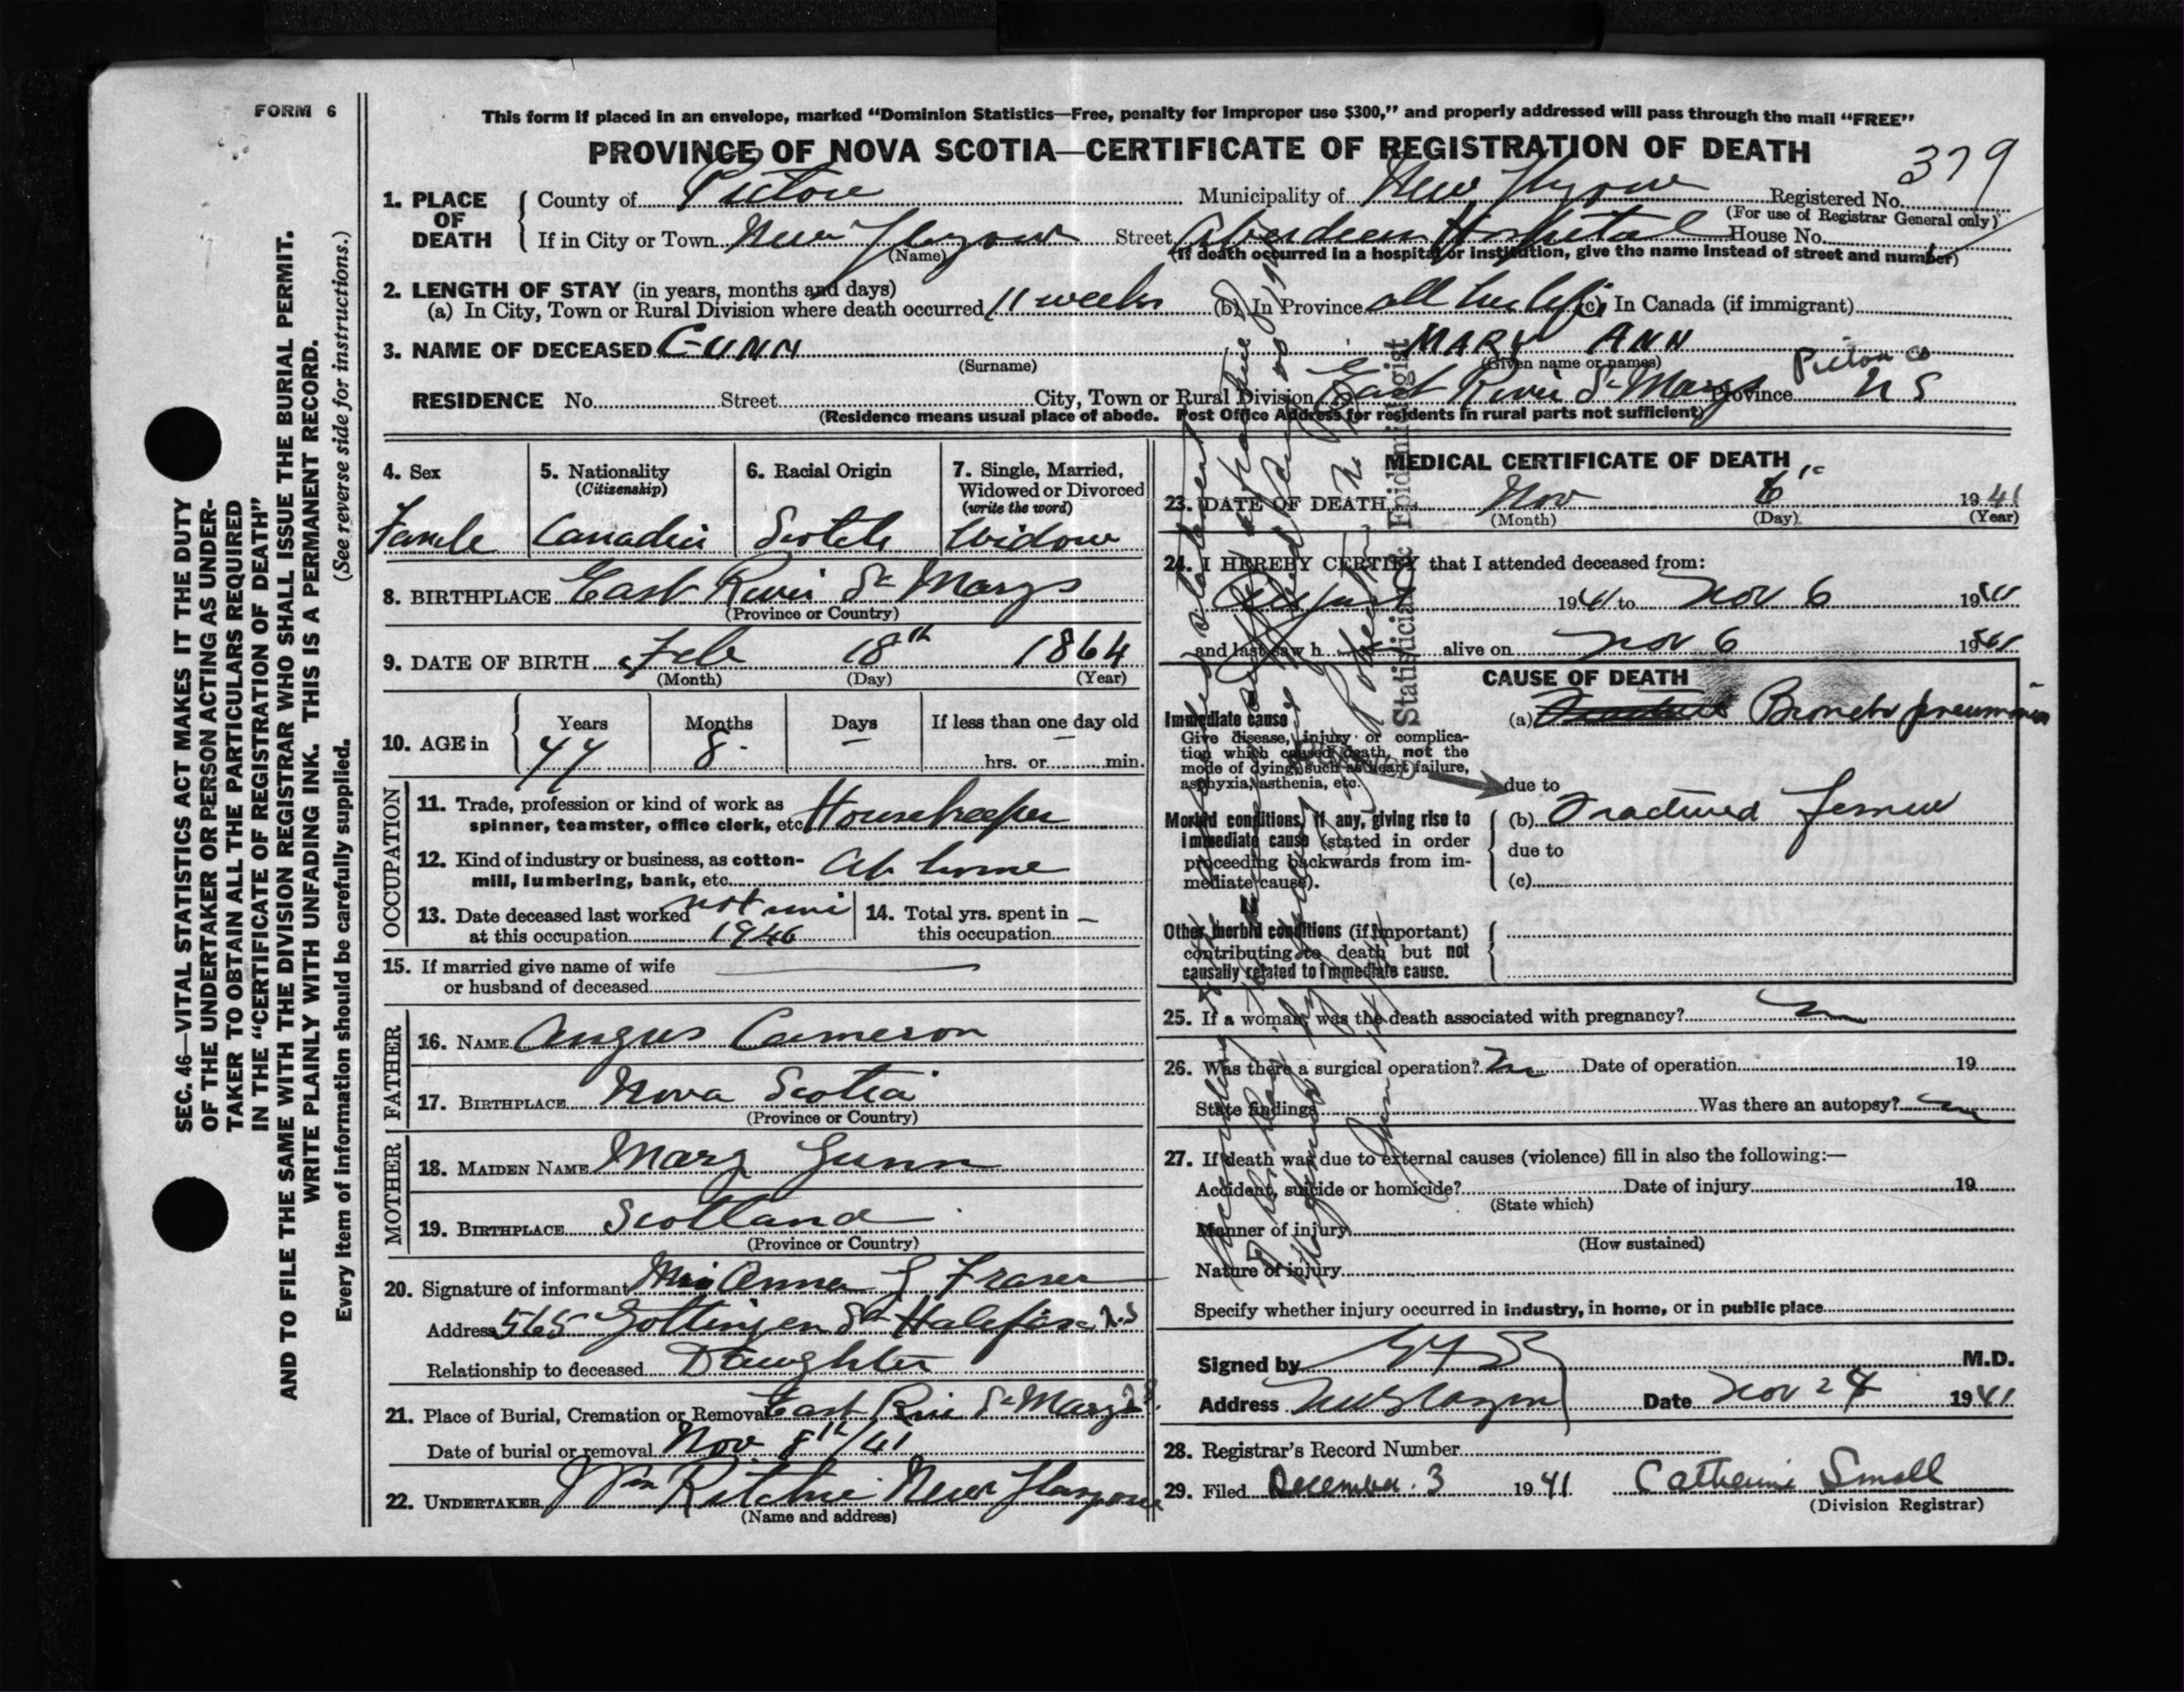 FORM 6
This form if placed in an envelope, marked “Dominion Statistics—Free, penalty for improper use $300,” and properly addressed will pass through the mail “FREE”
PROVINCE OF NOVA SCOTIA—CERTIFICATE OF REGISTRATION OF DEATH
379
1. PLACE OF DEATH
County of Pictou Municipality of New Glasgow Registered No.
(For use of Registrar General only)
If in City or Town New Glasgow Street Aberdeen Hospital House No.
(Name) (If death occurred in a hospital or institution, give the name instead of street and number)
2. LENGTH OF STAY (in years, months and days)
(a) In City, Town or Rural Division where death occurred 11 weeks (b) In Province all her life (c) In Canada (if immigrant)
3. NAME OF DECEASED GUNN MARY ANN
(Surname) (Given name or names)
Pictou Co
RESIDENCE No. Street City, Town or Rural Division East River St Marys Province N S
(Residence means usual place of abode. Post Office Address for residents in rural parts not sufficient)
4. Sex
Famle
5. Nationality
(Citizenship)
Canadin
6. Racial Origin
Scotch
7. Single, Married,
Widowed or Divorced
(write the word)
Widow
8. BIRTHPLACE East River St Marys
(Province or Country)
9. DATE OF BIRTH Feb 18th 1864
(Month) (Day) (Year)
10. AGE in
Years Months Days If less than one day old
77 8 — —
hrs. or min.
OCCUPATION
11. Trade, profession or kind of work as
spinner, teamster, office clerk, etc. Housekeeper
12. Kind of industry or business, as cotton-
mill, lumbering, bank, etc. At home
13. Date deceased last worked not
at this occupation 1940
14. Total yrs. spent in —
this occupation
15. If married give name of wife
or husband of deceased
FATHER
16. NAME Angus Cameron
17. BIRTHPLACE Nova Scotia
(Province or Country)
MOTHER
18. MAIDEN NAME Mary Gunn
19. BIRTHPLACE Scotland
(Province or Country)
20. Signature of informant Mrs Anna G Fraser
Address 565 Gottingen St Halifax N.S
Relationship to deceased Daughter
21. Place of Burial, Cremation or Removal East River St Marys
Date of burial or removal Nov. 8th/41
22. UNDERTAKER Wm Ritchie New Glasgow
(Name and address)
MEDICAL CERTIFICATE OF DEATH
23. DATE OF DEATH Nov 6 1941
(Month) (Day) (Year)
24. I HEREBY CERTIFY that I attended deceased from:
August 1941 to Nov 6 1941
and last saw h alive on Nov 6 1941
CAUSE OF DEATH
Immediate cause
Give disease, injury or complica-
tion which caused death, not the
mode of dying, such as heart failure,
asphyxia, asthenia, etc.
(a) Broncho pneumonia
due to
Morbid conditions, if any, giving rise to
immediate cause (stated in order
proceeding backwards from im-
mediate cause).
(b) Fractured femur
due to
(c)
Other morbid conditions (if important)
contributing to death but not
causally related to immediate cause.
25. If a woman, was the death associated with pregnancy? No
26. Was there a surgical operation? No Date of operation 19
State findings Was there an autopsy? No
27. If death was due to external causes (violence) fill in also the following:—
Accident, suicide or homicide? Date of injury 19
(State which)
Manner of injury
(How sustained)
Nature of injury
Specify whether injury occurred in industry, in home, or in public place
Signed by M.D.
Address New Glasgow Date Nov 24 1941
28. Registrar's Record Number
29. Filed December 3 1941 Catherine Small
(Division Registrar)
Statistician Epidemiologist
SEC. 46—VITAL STATISTICS ACT MAKES IT THE DUTY
OF THE UNDERTAKER OR PERSON ACTING AS UNDER-
TAKER TO OBTAIN ALL THE PARTICULARS REQUIRED
IN THE “CERTIFICATE OF REGISTRATION OF DEATH”
AND TO FILE THE SAME WITH THE DIVISION REGISTRAR WHO SHALL ISSUE THE BURIAL PERMIT.
WRITE PLAINLY WITH UNFADING INK. THIS IS A PERMANENT RECORD.
Every item of information should be carefully supplied. (See reverse side for instructions.)